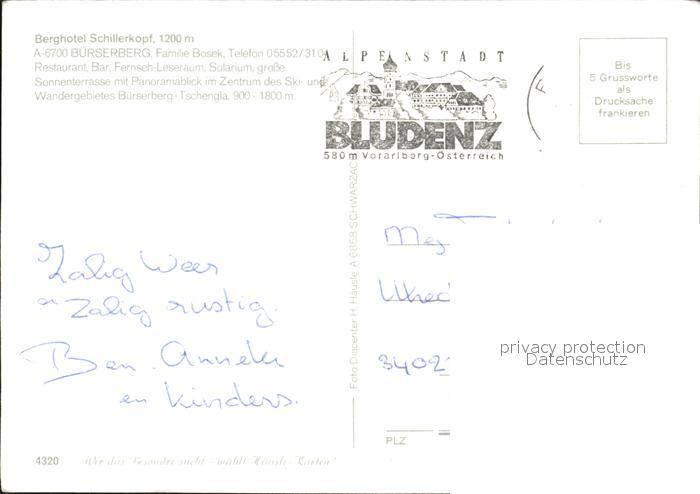 Berghotel Schillerkopf, 1200 m
A-6700 BÜRSERBERG, Familie Bosek, Telefon 05552/310
Restaurant, Bar, Fernseh-Leseraum, Solarium, große
Sonnenterrasse mit Panoramablick im Zentrum des Ski- und
Wandergebietes Bürserberg-Tschengla, 900 - 1800 m
ALPENSTADT
BLUDENZ
580m Vorarlberg-Österreich
Bis
5 Grussworte
als
Drucksache
frankieren
Foto Diacenter H. Häusle A 6858 SCHWARZAC
Zalig Weer
en Zalig rustig.
Ben. Anneke
en kinders.
Mej
3402
privacy protection
Datenschutz
PLZ
4320 Wer das Besondre sucht - wählt Häusle-Karten!